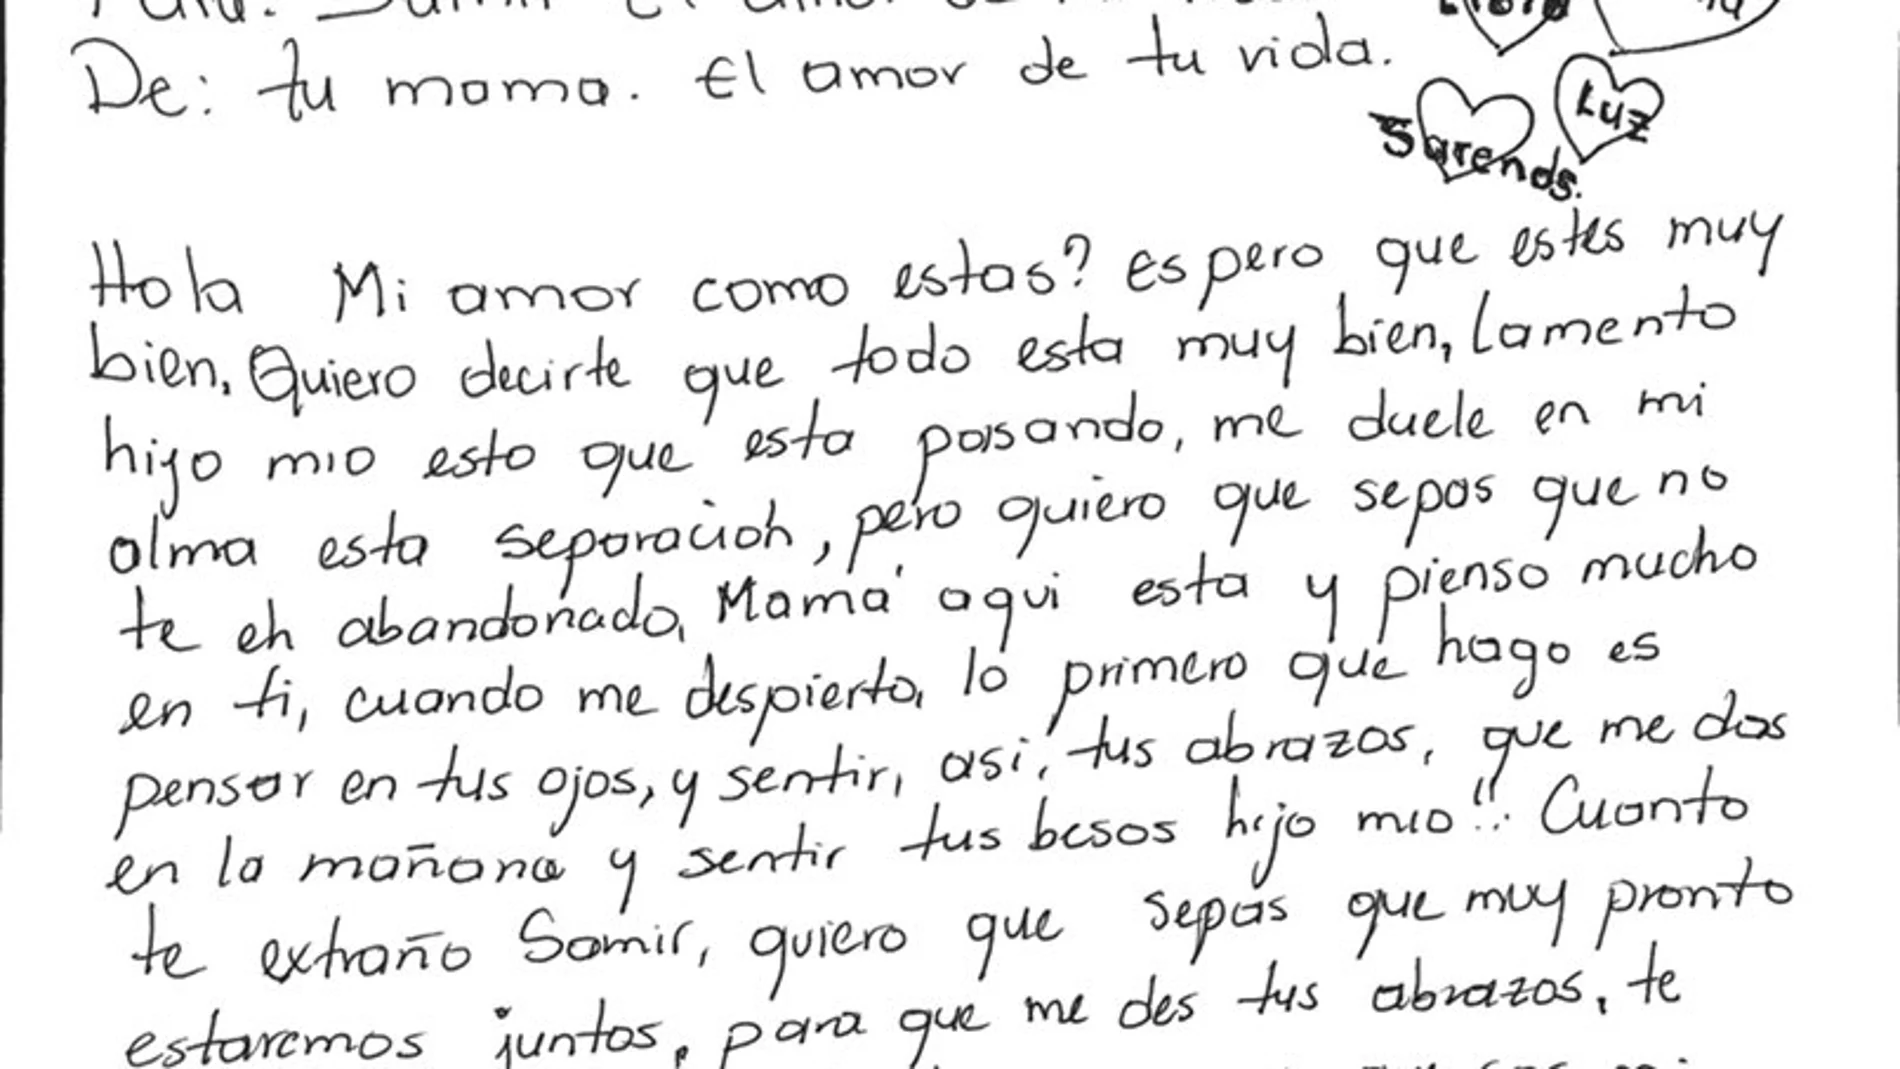 De: tu mama. El amor de tu vida.
Luz
Sarends.
Hola Mi amor como estas? espero que estes muy
bien. Quiero decirte que todo esta muy bien, lamento
hijo mio esto que esta pasando, me duele en mi
alma esta separacion, pero quiero que sepas que no
te eh abandonado, Mamá aqui esta y pienso mucho
en ti, cuando me despierto, lo primero que hago es
pensar en tus ojos, y sentir, asi, tus abrazos, que me das
en la mañana y sentir tus besos hijo mio!! Cuanto
te extraño Samir, quiero que sepas que muy pronto
estaremos juntos, para que me des tus abrazos, te